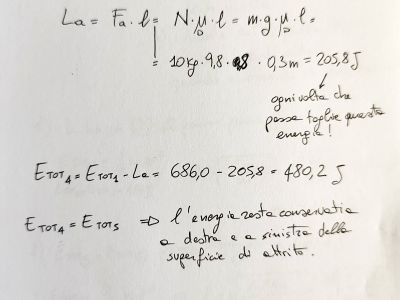 La = Fa · l = N · μD · l = m · g · μD · l =
= 10 kg · 9,8 · 0,3 m = 205,8 J
ogni volta che
passa toglie questa
energia!
ETOT4 = ETOT1 - La = 686,0 - 205,8 = 480,2 J
ETOT4 = ETOT5 => l'energia resta conservativa
a destra e a sinistra della
superficie di attrito.